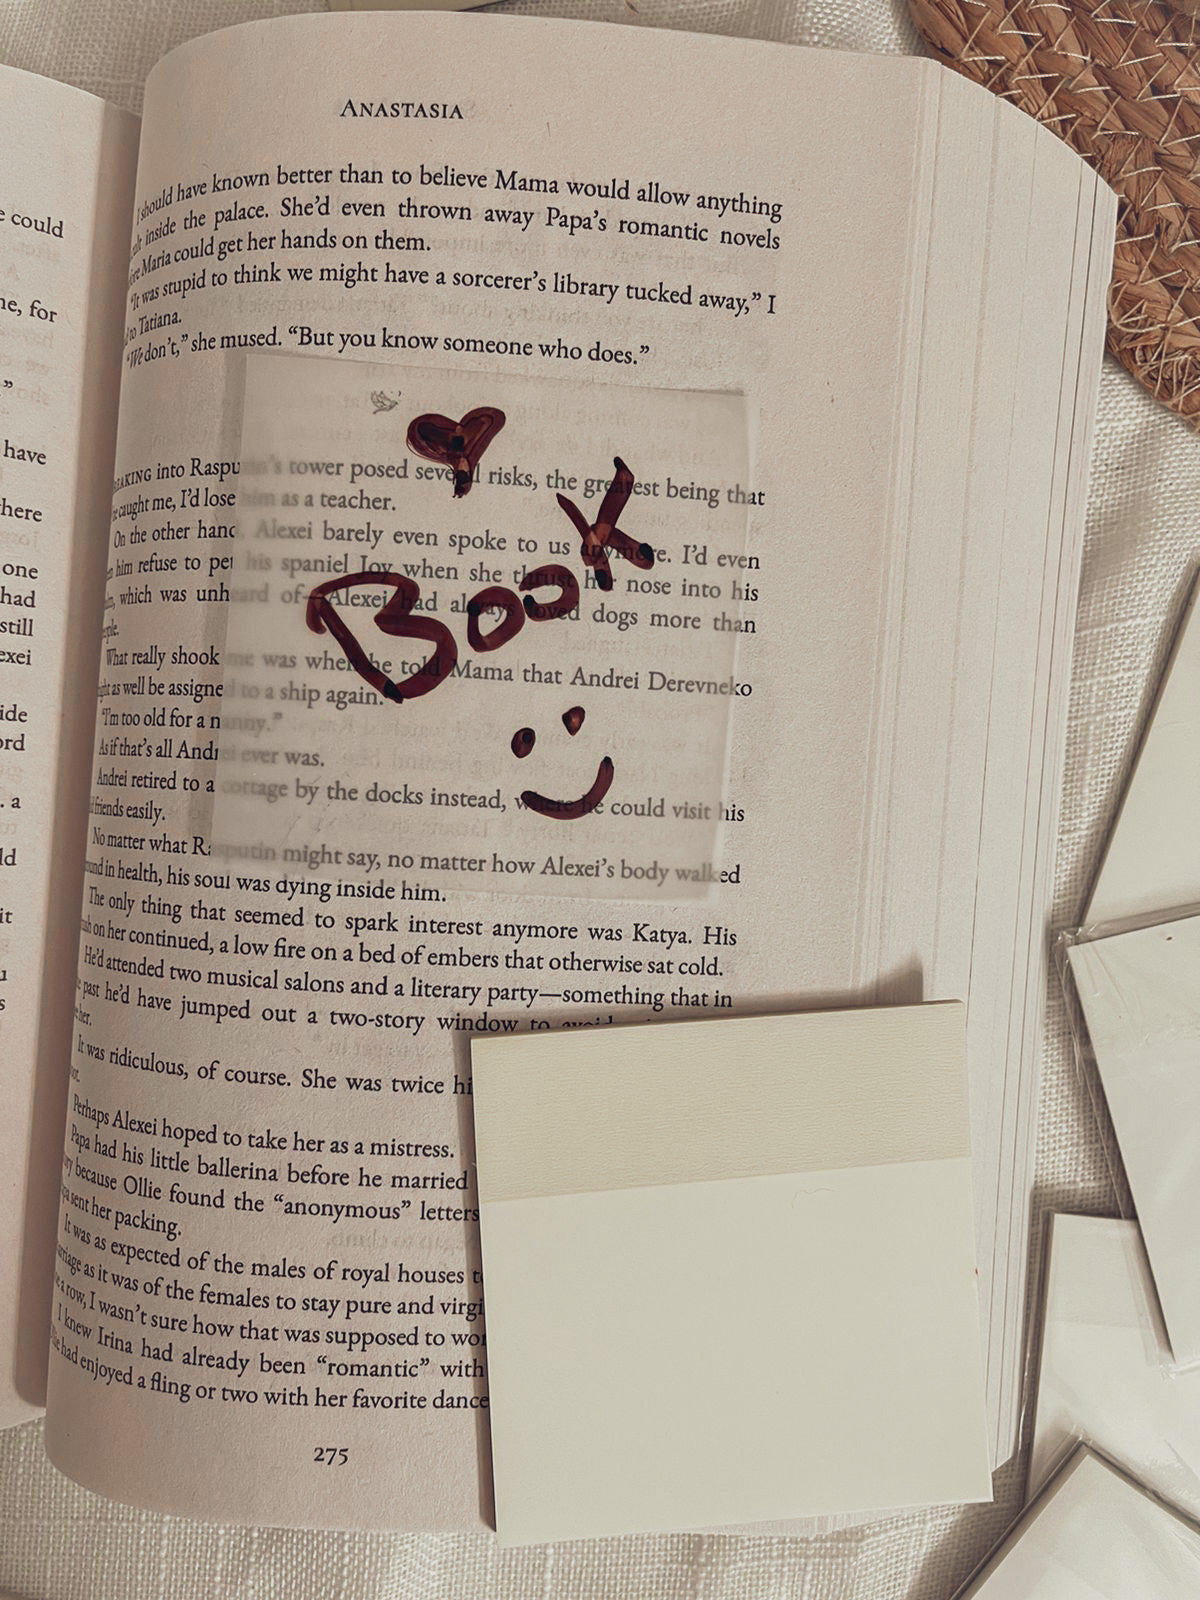 ANASTASIA
e could
should have known better than to believe Mama would allow anything
inside the palace. She'd even thrown away Papa's romantic novels
Maria could get her hands on them.
ne, for
"It was stupid to think we might have a sorcerer's library tucked away," I
to Tatiana.
"We don't," she mused. "But you know someone who does."
"
have
here
one
had
still
exei
ide
ord
. a
ld
it
u
s
EAKING into Rasputin's tower posed several risks, the greatest being that
caught me, I'd lose him as a teacher.
On the other hand, Alexei barely even spoke to us anymore. I'd even
him refuse to pet his spaniel Joy when she thrust her nose into his
, which was unheard of—Alexei had always loved dogs more than
ple.
What really shook me was when he told Mama that Andrei Derevneko
as well be assigned to a ship again.
"I'm too old for a nanny."
As if that's all Andrei ever was.
Andrei retired to a cottage by the docks instead, where he could visit his
friends easily.
No matter what Rasputin might say, no matter how Alexei's body walked
in health, his soul was dying inside him.
The only thing that seemed to spark interest anymore was Katya. His
on her continued, a low fire on a bed of embers that otherwise sat cold.
He'd attended two musical salons and a literary party—something that in
past he'd have jumped out a two-story window to avoid
her.
It was ridiculous, of course. She was twice hi
Perhaps Alexei hoped to take her as a mistress.
Papa had his little ballerina before he married
because Ollie found the "anonymous" letters
sent her packing.
It was as expected of the males of royal houses t
as it was of the females to stay pure and virgi
a row, I wasn't sure how that was supposed to wo
I knew Irina had already been "romantic" with
had enjoyed a fling or two with her favorite dance
275
Book